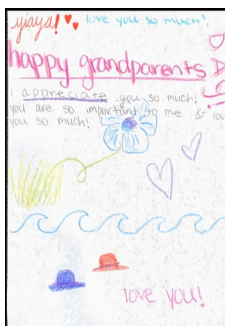 yiaya! love you so much!
happy grandparents
DAY!
i appreciate you so much!
you are so important to me & love
you so much!
love you!